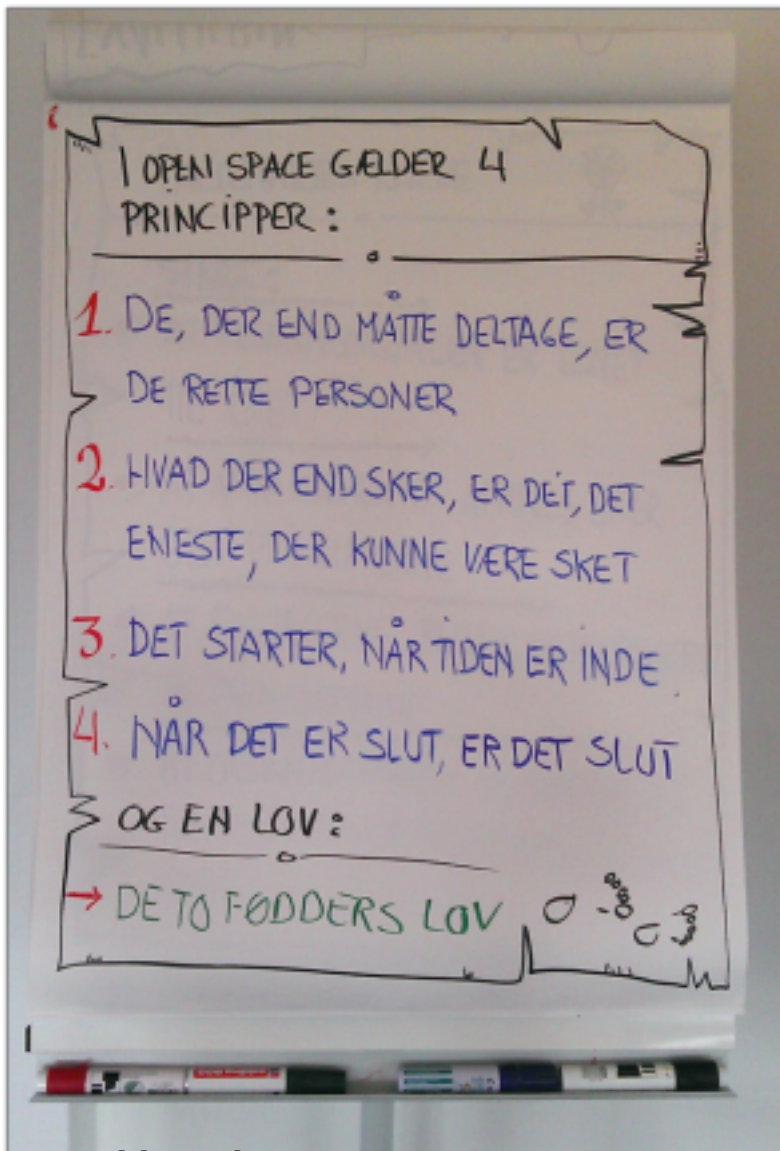 I OPEN SPACE GÆLDER 4
PRINCIPPER:
1. DE, DER END MÅTTE DELTAGE, ER
DE RETTE PERSONER
2. HVAD DER END SKER, ER DÉT, DET
ENESTE, DER KUNNE VÆRE SKET
3. DET STARTER, NÅR TIDEN ER INDE.
4. NÅR DET ER SLUT, ER DET SLUT
OG EN LOV:
→ DE TO FØDDERS LOV